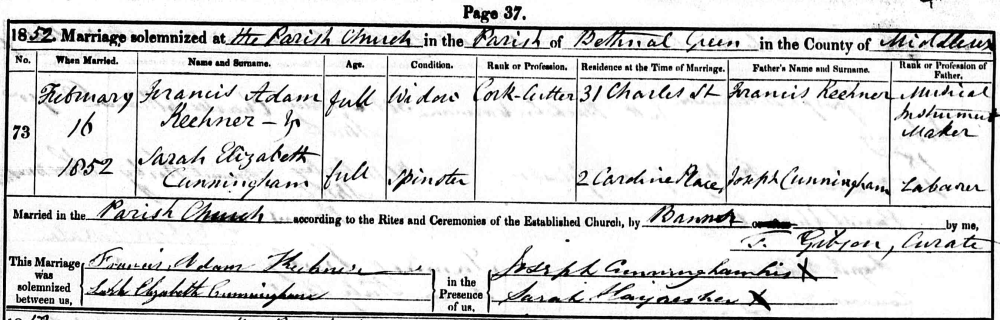 Page 37.
1852. Marriage solemnized at the Parish Church in the Parish of Bethnal Green in the County of Middlesex
No. When Married. Name and Surname. Age. Condition. Rank or Profession. Residence at the Time of Marriage. Father's Name and Surname. Rank or Profession of Father.
73
February 16 1852
Francis Adam Kechner &
full Widow Cork-Cutter 31 Charles St Francis Kechner Musical Instrument Maker
Sarah Elizabeth Cunningham
full Spinster 2 Caroline Place, Joseph Cunningham Labourer
Married in the Parish Church according to the Rites and Ceremonies of the Established Church, by Banns or by me,
Gibson, Curate
This Marriage was solemnized between us,
Francis Adam
Elizabeth Cunningham
in the Presence of us,
Joseph Cunningham his X
Sarah X